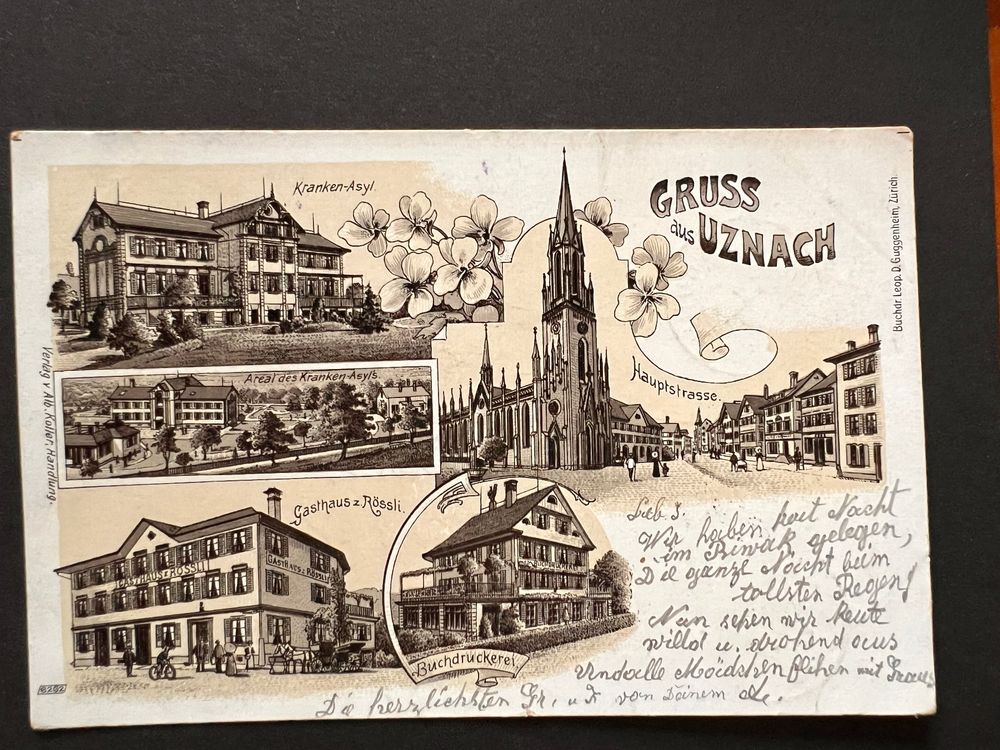 Kranken-Asyl.
GRUSS
aus UZNACH
Buchdr. Leop. D. Guggenheim, Zürich.
Verlag v. Alb. Koller, Handlung.
Areal des Kranken-Asyls.
Hauptstrasse.
Gasthaus z. Rössli.
GASTHAUS z. RÖSSLI
GASTHAUS z. RÖSSLI
Buchdruckerei.
Lieb J.
Wir haben heut Nacht
im Biwak gelegen,
Die ganze Nacht beim
tollsten Regen!
Nun sehen wir heute
willd u. drohend aus
Und alle Mädchen flihen mit Graus
Die herzlichsten Gr. u. K von Deinem